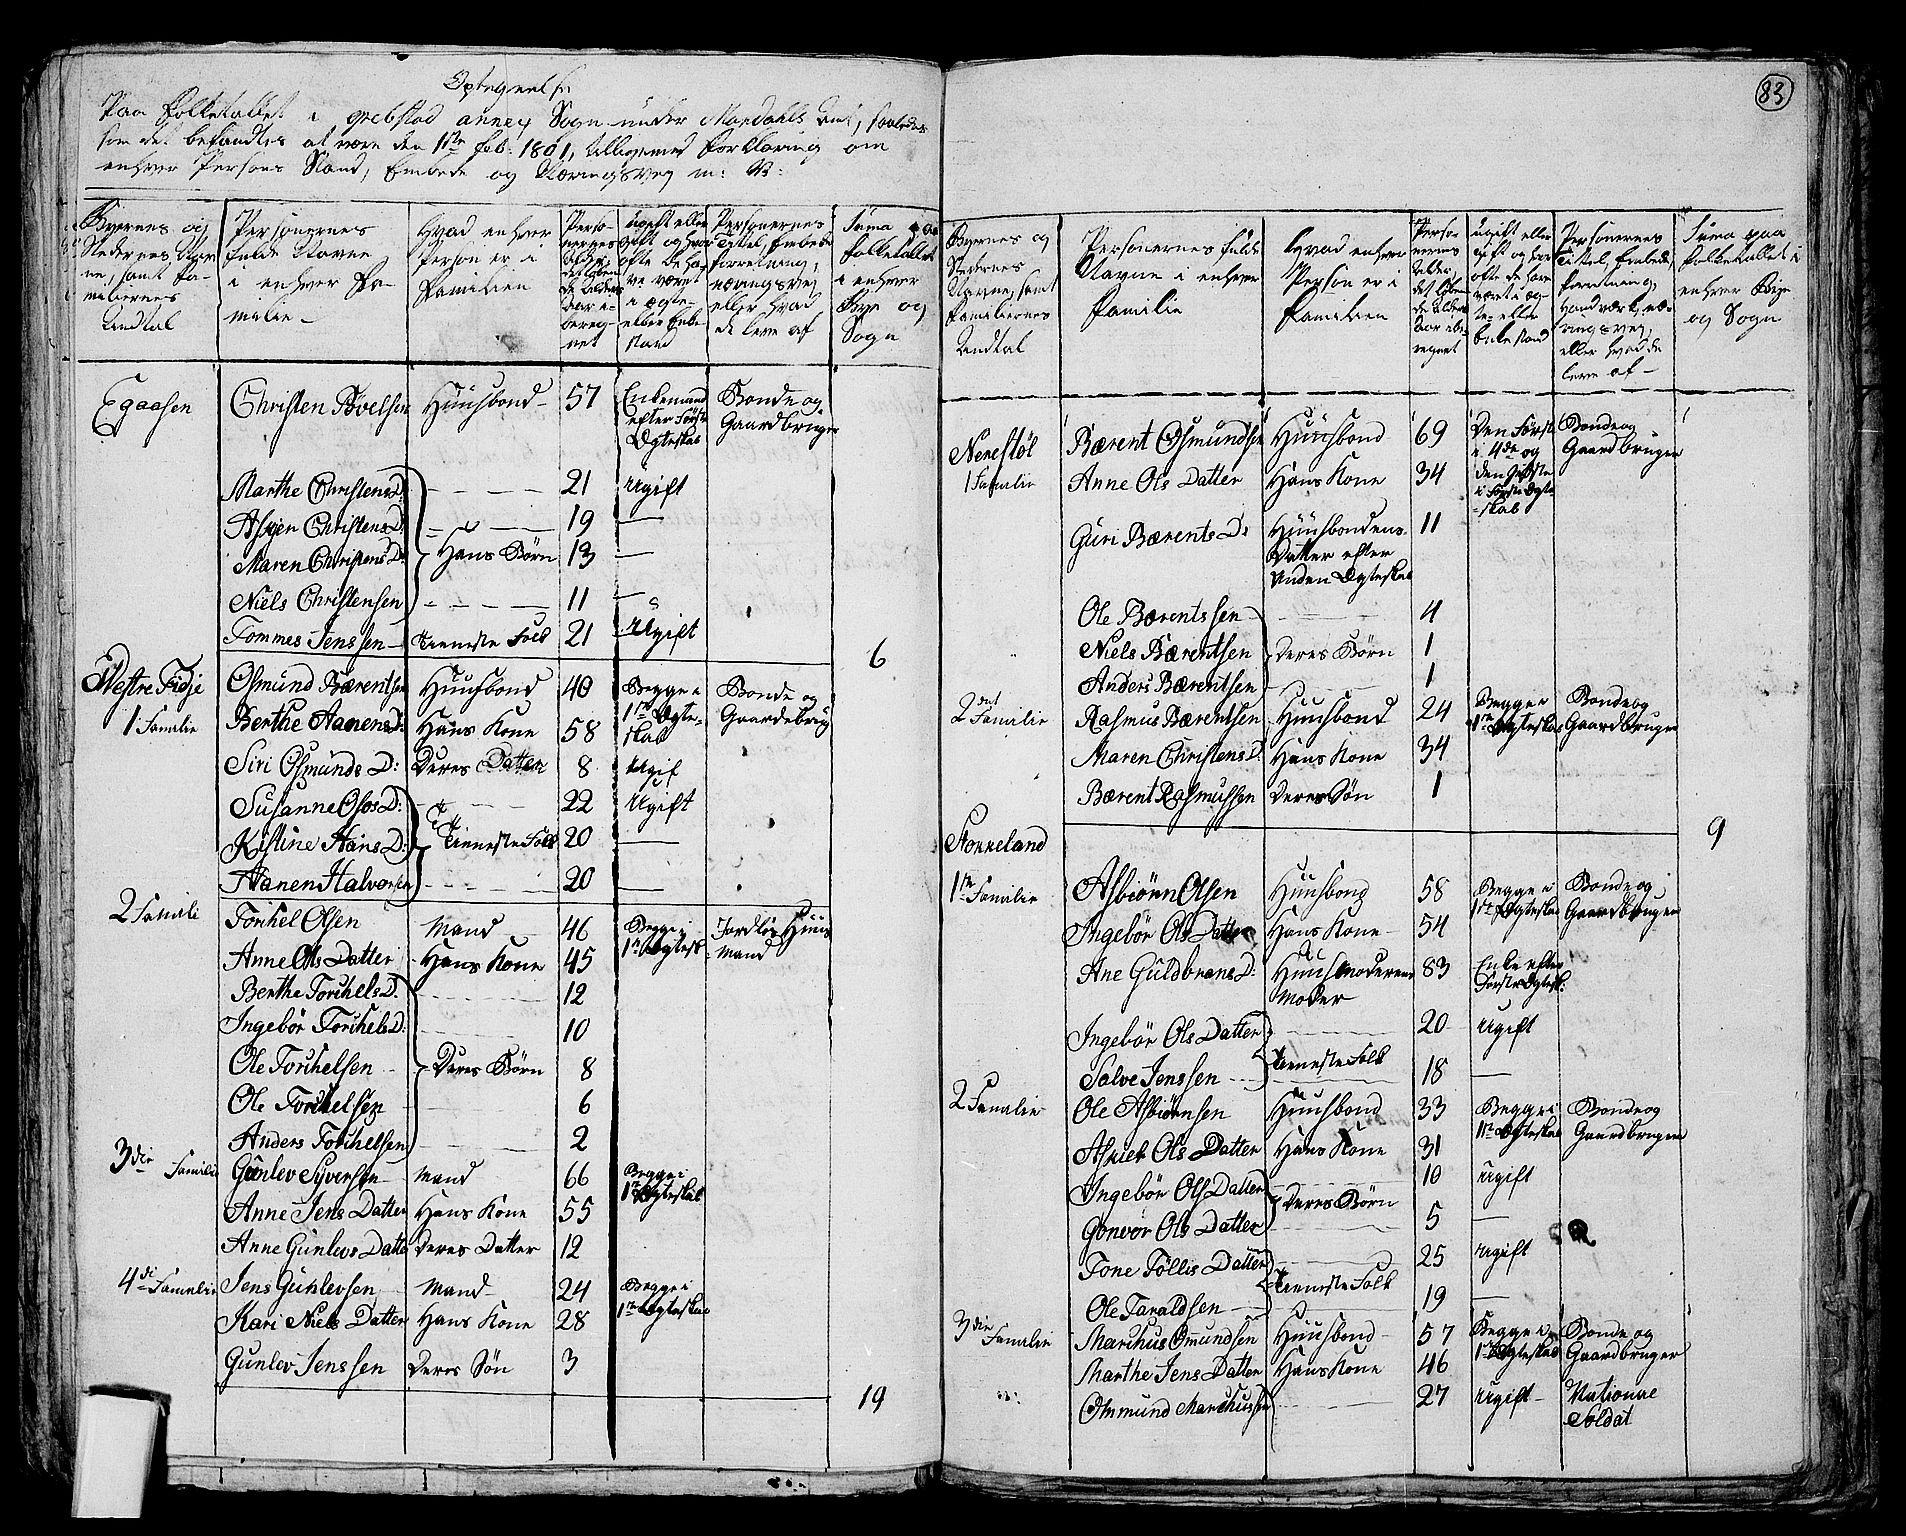 83
Optegnelse
Paa Folketallet i Grebstad annex Sogn under Mandahls Amt, saaledes
som det befandtes at være den 1ste Feb: 1801, tilligemed Forklaring om
enhver Persons Stand, Embede og Næringsvey m: v:
Byernes og Stedernes Navne, samt Familiernes Andtal
Personernes fulde Navne i enhver Familie
Hvad enhver Person er i Familien
Personernes Alder, det løbende Alders Aar iberegnet
ugift eller gift og hvor ofte de have været i ægte- eller Enkestand
Personernes Titel, Embede, forretning, næringsvej eller hvad de leve af
Suma paa folketallet i enhver Bye og Sogn
Egaasen Christen Tovelsen Huusbond 57 Enkemand efter Første Ægteskab Bonde og Gaardbruger
Marthe Christens D: 21 Ugift
Christens D: 19 —
Maren Christens D: Hans Børn 13 —
Niels Christensen 11 —
Tommes Jenssen tieneste Folk 21 Ugift
6
Westre Fidje Osmund Bærentsen Huusbond 40 Begge i 1ste Ægteskab Bonde og Gaardebrug
1 Familie Berthe Aanens D: Hans Kone 58
Siri Osmunds D: Deres Datter 8 Ugif
Susanne D: 22 Ugift
Kistine Hans D: Tieneste Folk 20 —
Aanen Halvorsen 20 —
2 Famili Torkel Olsen Mand 46 Begge i 1ste Ægtesk Jordløs Huus mand
Anne Ols Datter Hans Kone 45
Berthe Torkels D: 12
Ingebør Torkels D: 10
Ole Torkelsen Deres Børn 8
Ole Torkelsen 6
Anders Torkelsen 2
3die Familie Gunlev Syversen mand 66 Begge i 1ste Ægteskab
Anne Jens Datter Hans Kone 55
Anne Gunlevs Datter Deres Datter 12
4de Familie Jens Gunlevsen Mand 24 Begge i 1ste Ægteskab
Kari Niels Datter Hans Kone 28
Gunlev Jenssen Deres Søn 3
19
Byernes og Stedernes Navne, samt Familiernes Andtal
Personernes fulde Navne i enhver Familie
Hvad enhver Person er i Familien
Personernes Alder, det løbende Alders Aar iberegnet
ugift eller gift og hvor ofte de have været i ægte- eller Enkestand
Personernes Titel, Embede, forretning, Handværk, næringsvej, eller hvad de leve af
Suma paa folketallet i enhver Bye og Sogn
Nerestøl Bærent Osmundsen Huusbond 69 Den Første i 4de og den Sidste i Første Ægteskab Bonde og Gaardbruger
1 Familie Anne Ols Datter Hans Kone 34
Guri Bærents D: Huusbondens Datter efter Anden Ægteskab 11
Ole Bærentssen 4
Niels Bærentsen Deres Børn 1
Anders Bærentsen 1
2den Familie Rasmus Bærentsen Huusbond 24 Begge i 1ste Ægteskab Bonde og Gaardbruger
Maren Christens D: Hans Kone 34
Bærent Rasmussen Deres Søn 1
9
Stonneland
1ste Familie Asbiørn Olsen Huusbond 58 Begge i 1ste Ægteskab Bonde og Gaardbruger
Ingebør Ols Datter Hans Kone 54
Ane Guldbrans D: Huusmoderens Moder 83 Enke efter Første Ægtesk:
Ingebør Ols Datter 20 Ugift
Salve Jenssen Tieneste Folk 18 —
2 Familie Ole Asbiørnsen Huusbond 33 Begge i 1ste Ægteskab Bonde og Gaardbruger
Ols Datter Hans Kone 31
Ingebør Ols Datter 10 Ugift
Gonvør Ols Datter Deres Børn 5 —
Tone Tollis Datter 25 Ugift
Ole Taraldsen Tieneste Folk 19 —
3die Familie Marchus Omundsen Huusbond 57 Begge i 1ste Ægteskab Bonde og Gaardbruger
Marthe Jens Datter Hans Kone 46
Ommund Marchussen 27 Ugift National Soldat